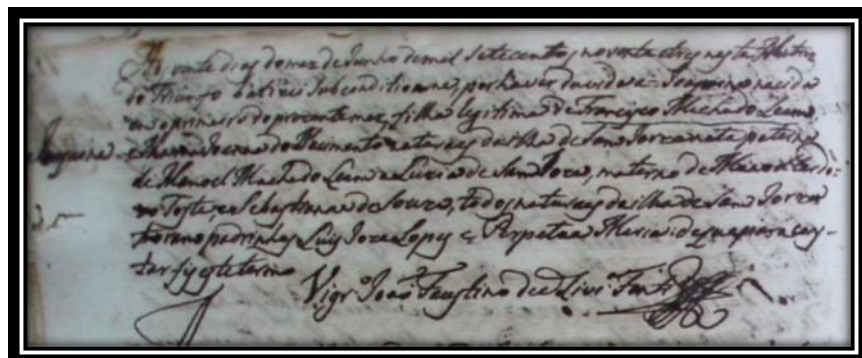 Aos vinte dias do mez de Junho de mil setecentos noventa e tres nesta Matriz
do Triunfo batizei Subconditione, por haver duvida a Joaquina nacida
ao primeiro do prezente mez, filha legitima de Francisco Machado Leam
Joaquina e Maria Joanna do naturaes da Ilha de Sam Jorze neta paterna
de Manoel Machado Leam e Luzia de Sam Joze, materna de
Toste, e Sebastianna de Souza, todos naturaes da Ilha de Sam Jorze
foram padrinhos Luis Joze Lopes e Perpetua Maria: de que para cons-
tar fiz este termo
Vigr.o João Faustino de